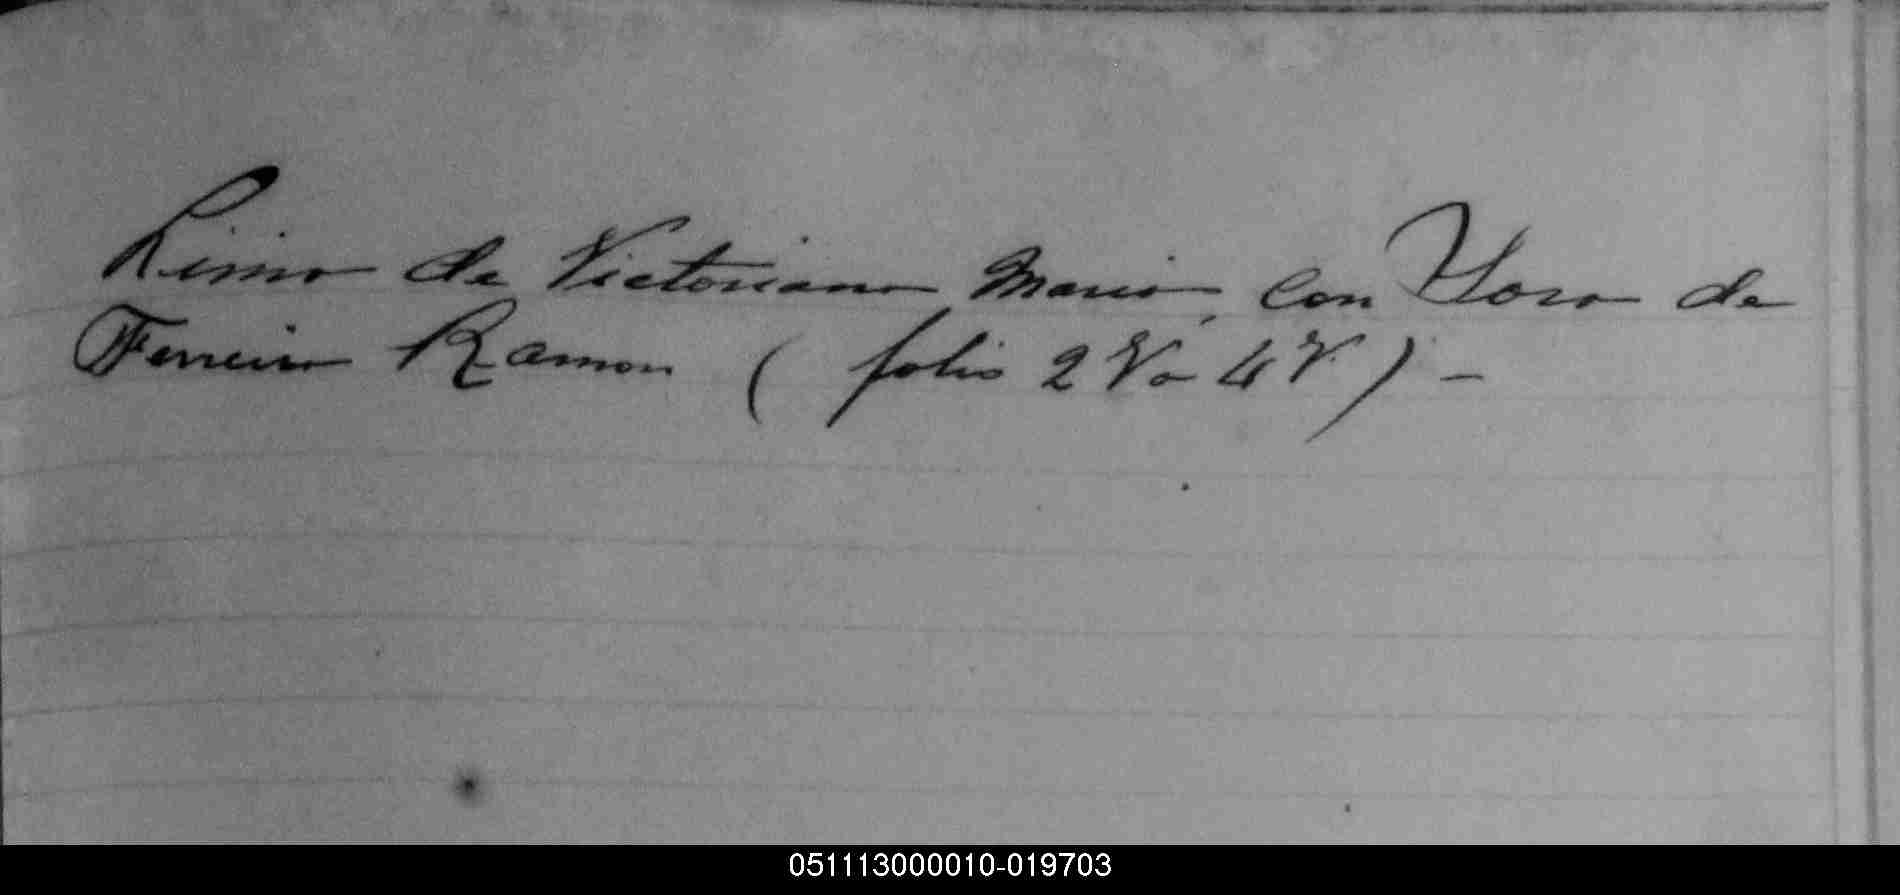 de Victoriano Mario, con de
Ferreiro Ramon ( folio 2 Vo 4 V ) -
051113000010-019703